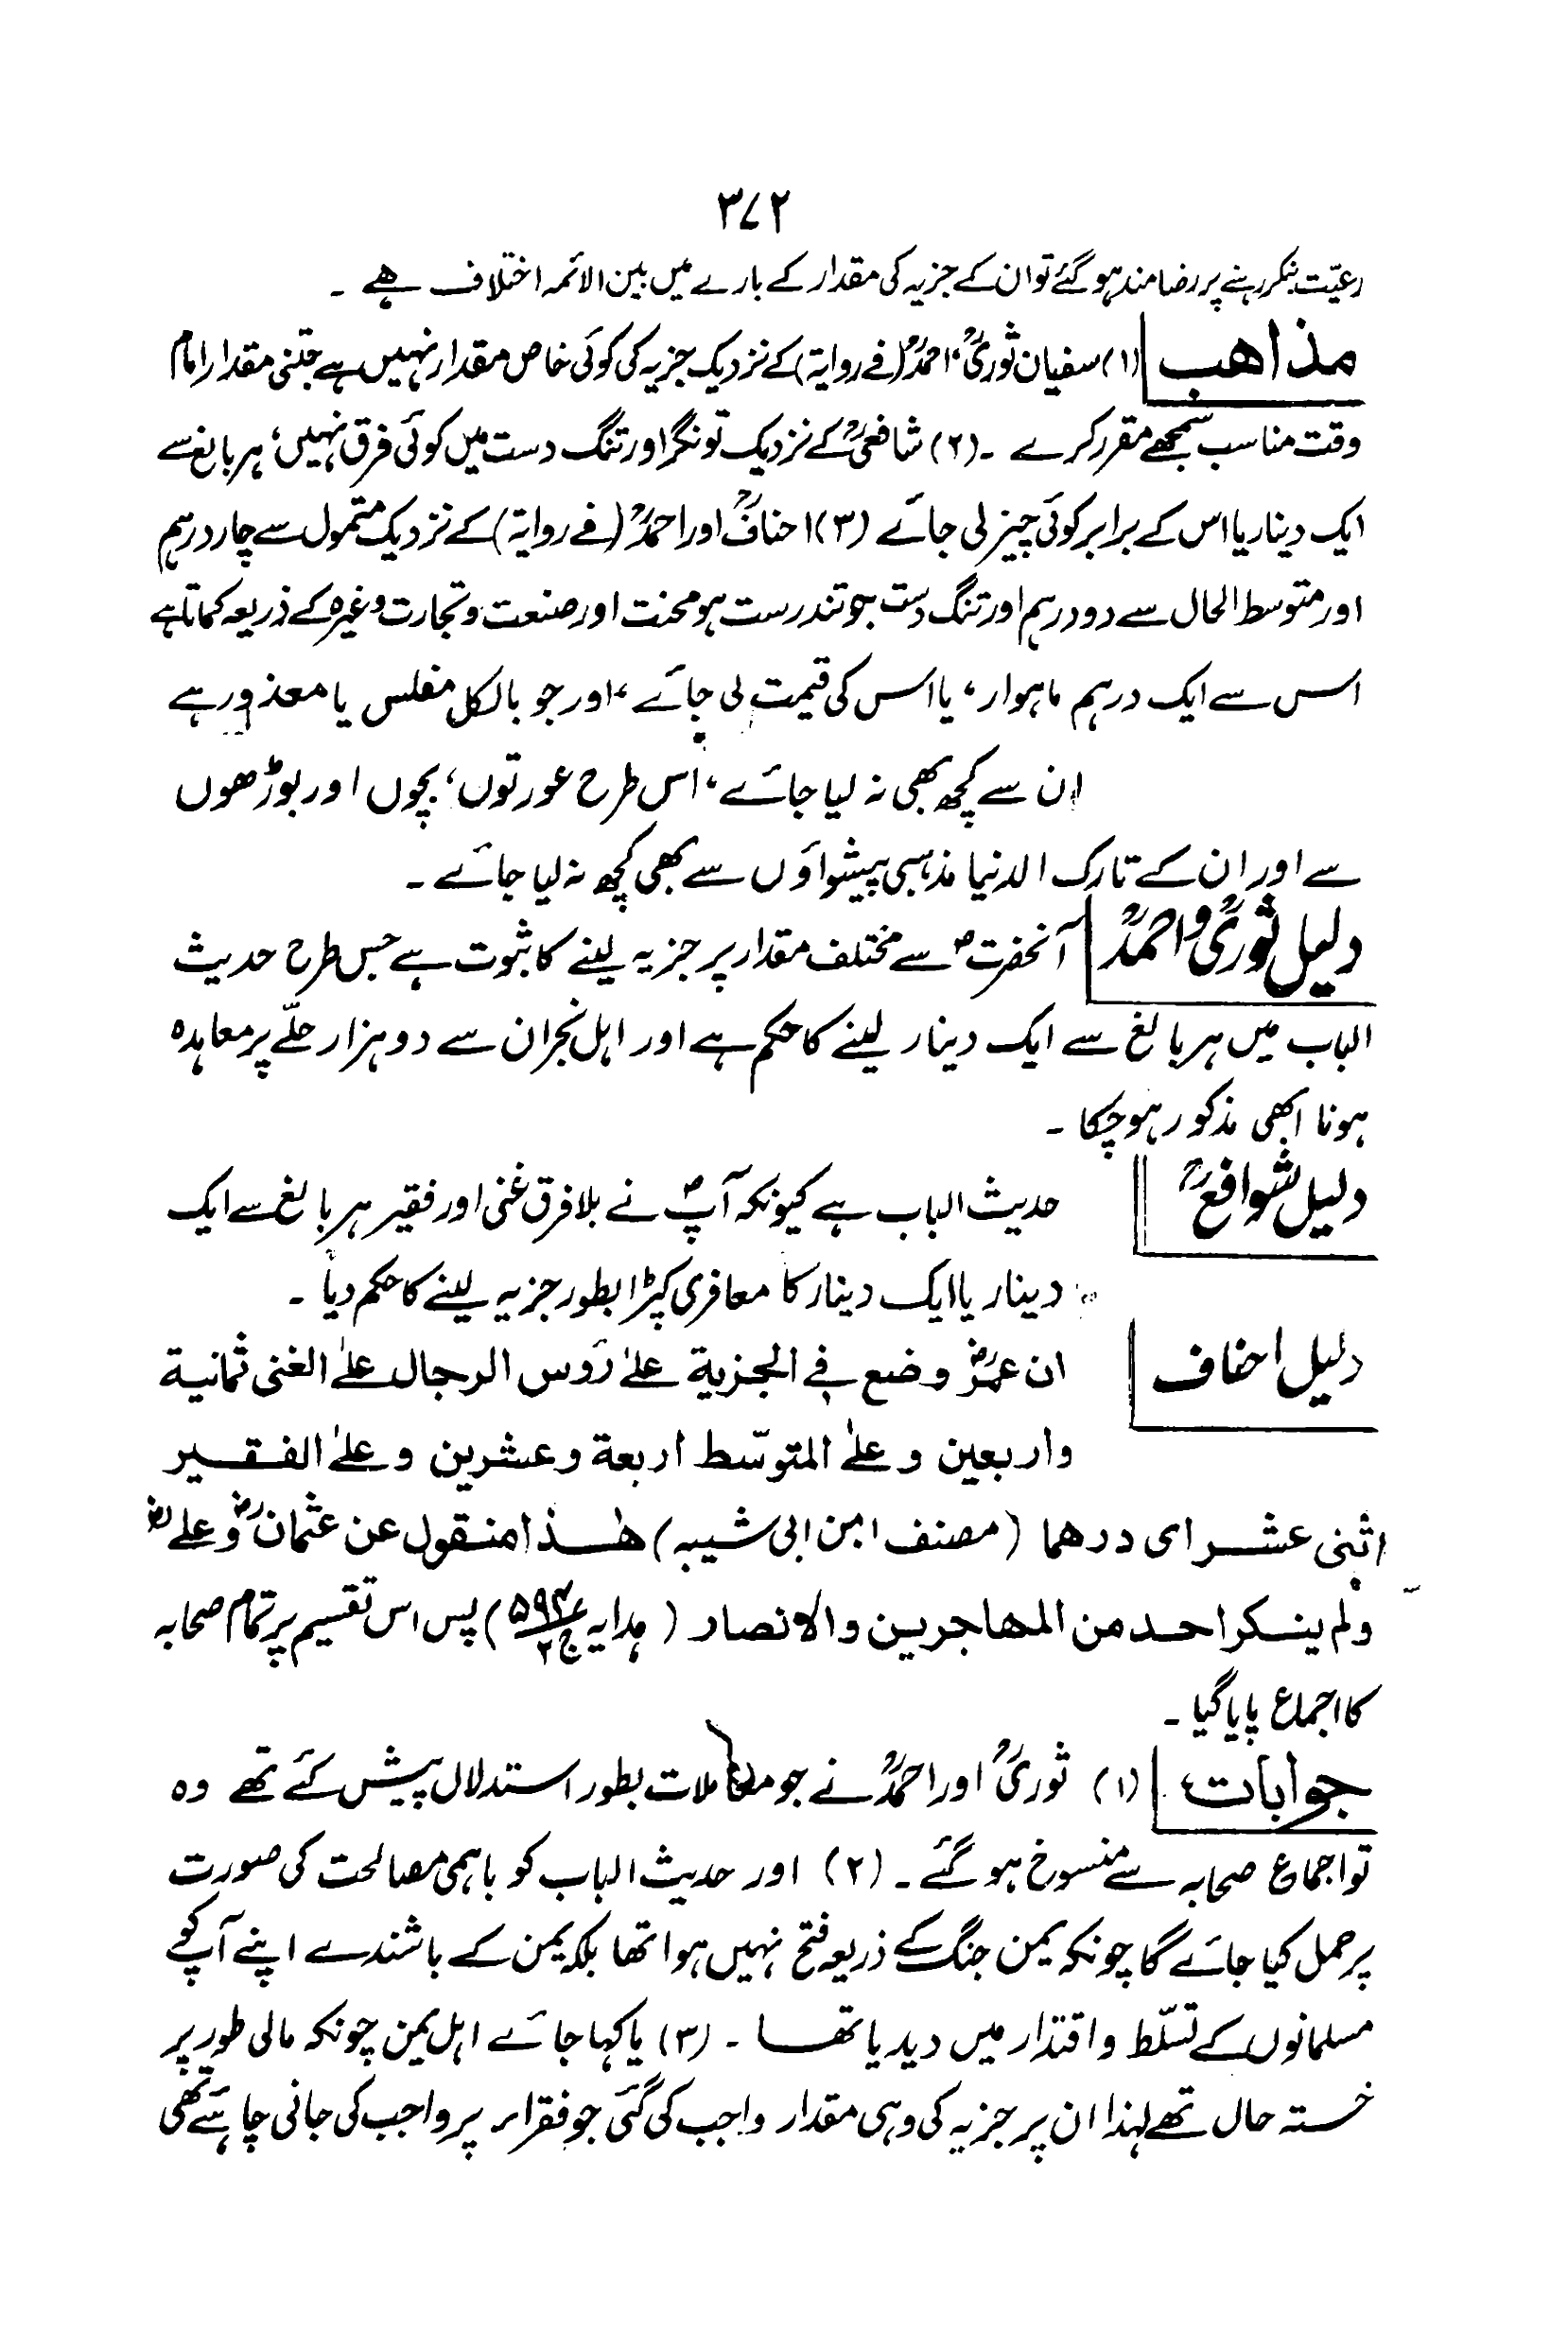 ۳۷۲
رعیّت بنکر رہنے پر رضامند ہوگئے تو ان کے جزیہ کی مقدار کے بارے میں بین الائمہ اختلاف ہے ۔
مذاهب (۱) سفیان ثوریؒ، احمدؒ (فے روایۃ) کے نزدیک جزیہ کی کوئی خاص مقدار نہیں ہے جتنی مقدار امام
وقت مناسب سمجھے مقرر کرے ۔ (۲) شافعیؒ کے نزدیک تونگر اور تنگ دست میں کوئی فرق نہیں، ہر بالغ سے
ایک دینار یا اس کے برابر کوئی چیز لی جائے (۳) احنافؒ اور احمدؒ (فے روایۃ) کے نزدیک متمول سے چار درہم
اور متوسط الحال سے دو درہم اور تنگ دست جو تندرست ہو محنت اور صنعت و تجارت وغیرہ کے ذریعہ کماتا ہے
اس سے ایک درہم ماہوار، یا اس کی قیمت لی جائے، اور جو بالکل مفلس یا معذور ہے
ان سے کچھ بھی نہ لیا جائے، اس طرح عورتوں، بچوں اور بوڑھوں
سے اور ان کے تارک الدنیا مذہبی پیشواؤں سے بھی کچھ نہ لیا جائے ۔
دلیل ثوریؒ و احمدؒ آنحضرتؐ سے مختلف مقدار پر جزیہ لینے کا ثبوت ہے جس طرح حدیث
الباب میں ہر بالغ سے ایک دینار لینے کا حکم ہے اور اہل نجران سے دو ہزار حلّے پر معاہدہ
ہونا ابھی مذکور ہوچکا ۔
دلیل شوافعؒ حدیث الباب ہے کیونکہ آپؐ نے بلا فرق غنی اور فقیر ہر بالغ سے ایک
دینار یا ایک دینار کا معافری کپڑا بطور جزیہ لینے کا حکم دیا ۔
دلیل احناف ان عمرؓ وضع فی الجزیة علیٰ رؤس الرجال علے الغنی ثمانیة
واربعین و علے المتوسّط اربعة وعشرین وعلیٰ الفقیر
اثنی عشر ای درهما (مصنف ابن ابی شیبہ) هٰذا منقول عن عثمانؓ وعلیؓ
ولم ینکر احد من المهاجرین والانصار (ہدایہ ۵۹۴ ج۲) پس اس تقسیم پر تمام صحابہ
کا اجماع پایا گیا ۔
جوابات (۱) ثوریؒ اور احمدؒ نے جو معاملات بطور استدلال پیش کئے تھے وہ
تو اجماع صحابہ سے منسوخ ہوگئے ۔ (۲) اور حدیث الباب کو باہمی مصالحت کی صورت
پر حمل کیا جائے گا چونکہ یمن جنگ کے ذریعہ فتح نہیں ہوا تھا بلکہ یمن کے باشندے اپنے آپ کو
مسلمانوں کے تسلّط و اقتدار میں دیدیا تھا ۔ (۳) یا کہا جائے اہل یمن چونکہ مالی طور پر
خستہ حال تھے لہٰذا ان پر جزیہ کی وہی مقدار واجب کی گئی جو فقراء پر واجب کی جانی چاہئے تھی